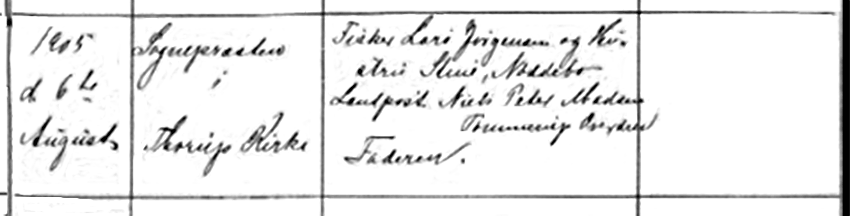 1905
d. 6te
August
Sognepræsten
i
Thorup Kirke
Fisker Lars Jørgensen og Hu-
stru Stine,
Landpost Niels Peter Madsen
Tommerup
Faderen.